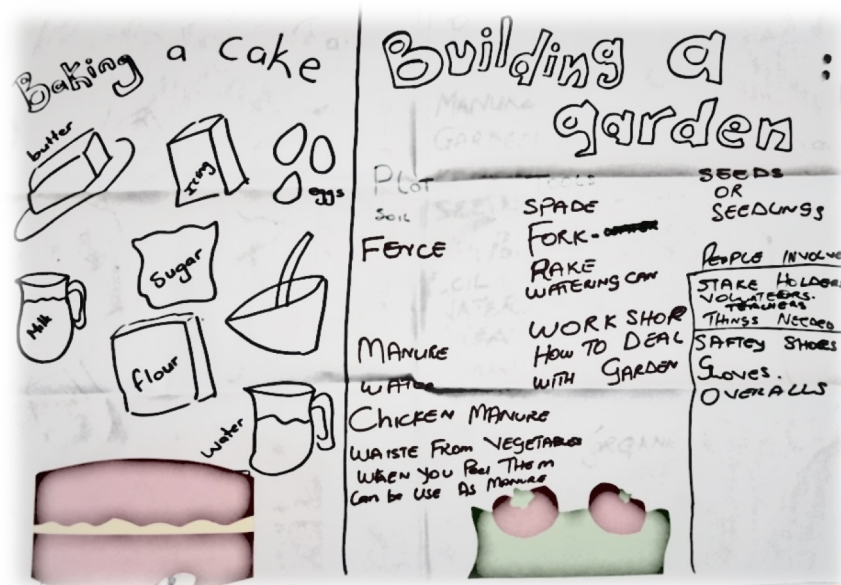 Baking a cake
butter
Icing
eggs
Sugar
Milk
flour
Water
Building a :
garden
PLOT
SOIL
FENCE
MANURE
WATER
CHICKEN MANURE
WAISTE FROM VEGETABLES
WHEN YOU PEEL THEM
Can be USE AS MANURE
SPADE
FORK-
RAKE
WATERING CAN
WORK SHOP
HOW TO DEAL
WITH GARDEN
SEEDS
OR
SEEDLINGS
PEOPLE INVOLVE
STAKE HOLDER
VOLUNTEERS.
TEACHERS
THINGS NEEDED
SAFTEY SHOES
GLOVES.
OVERALLS